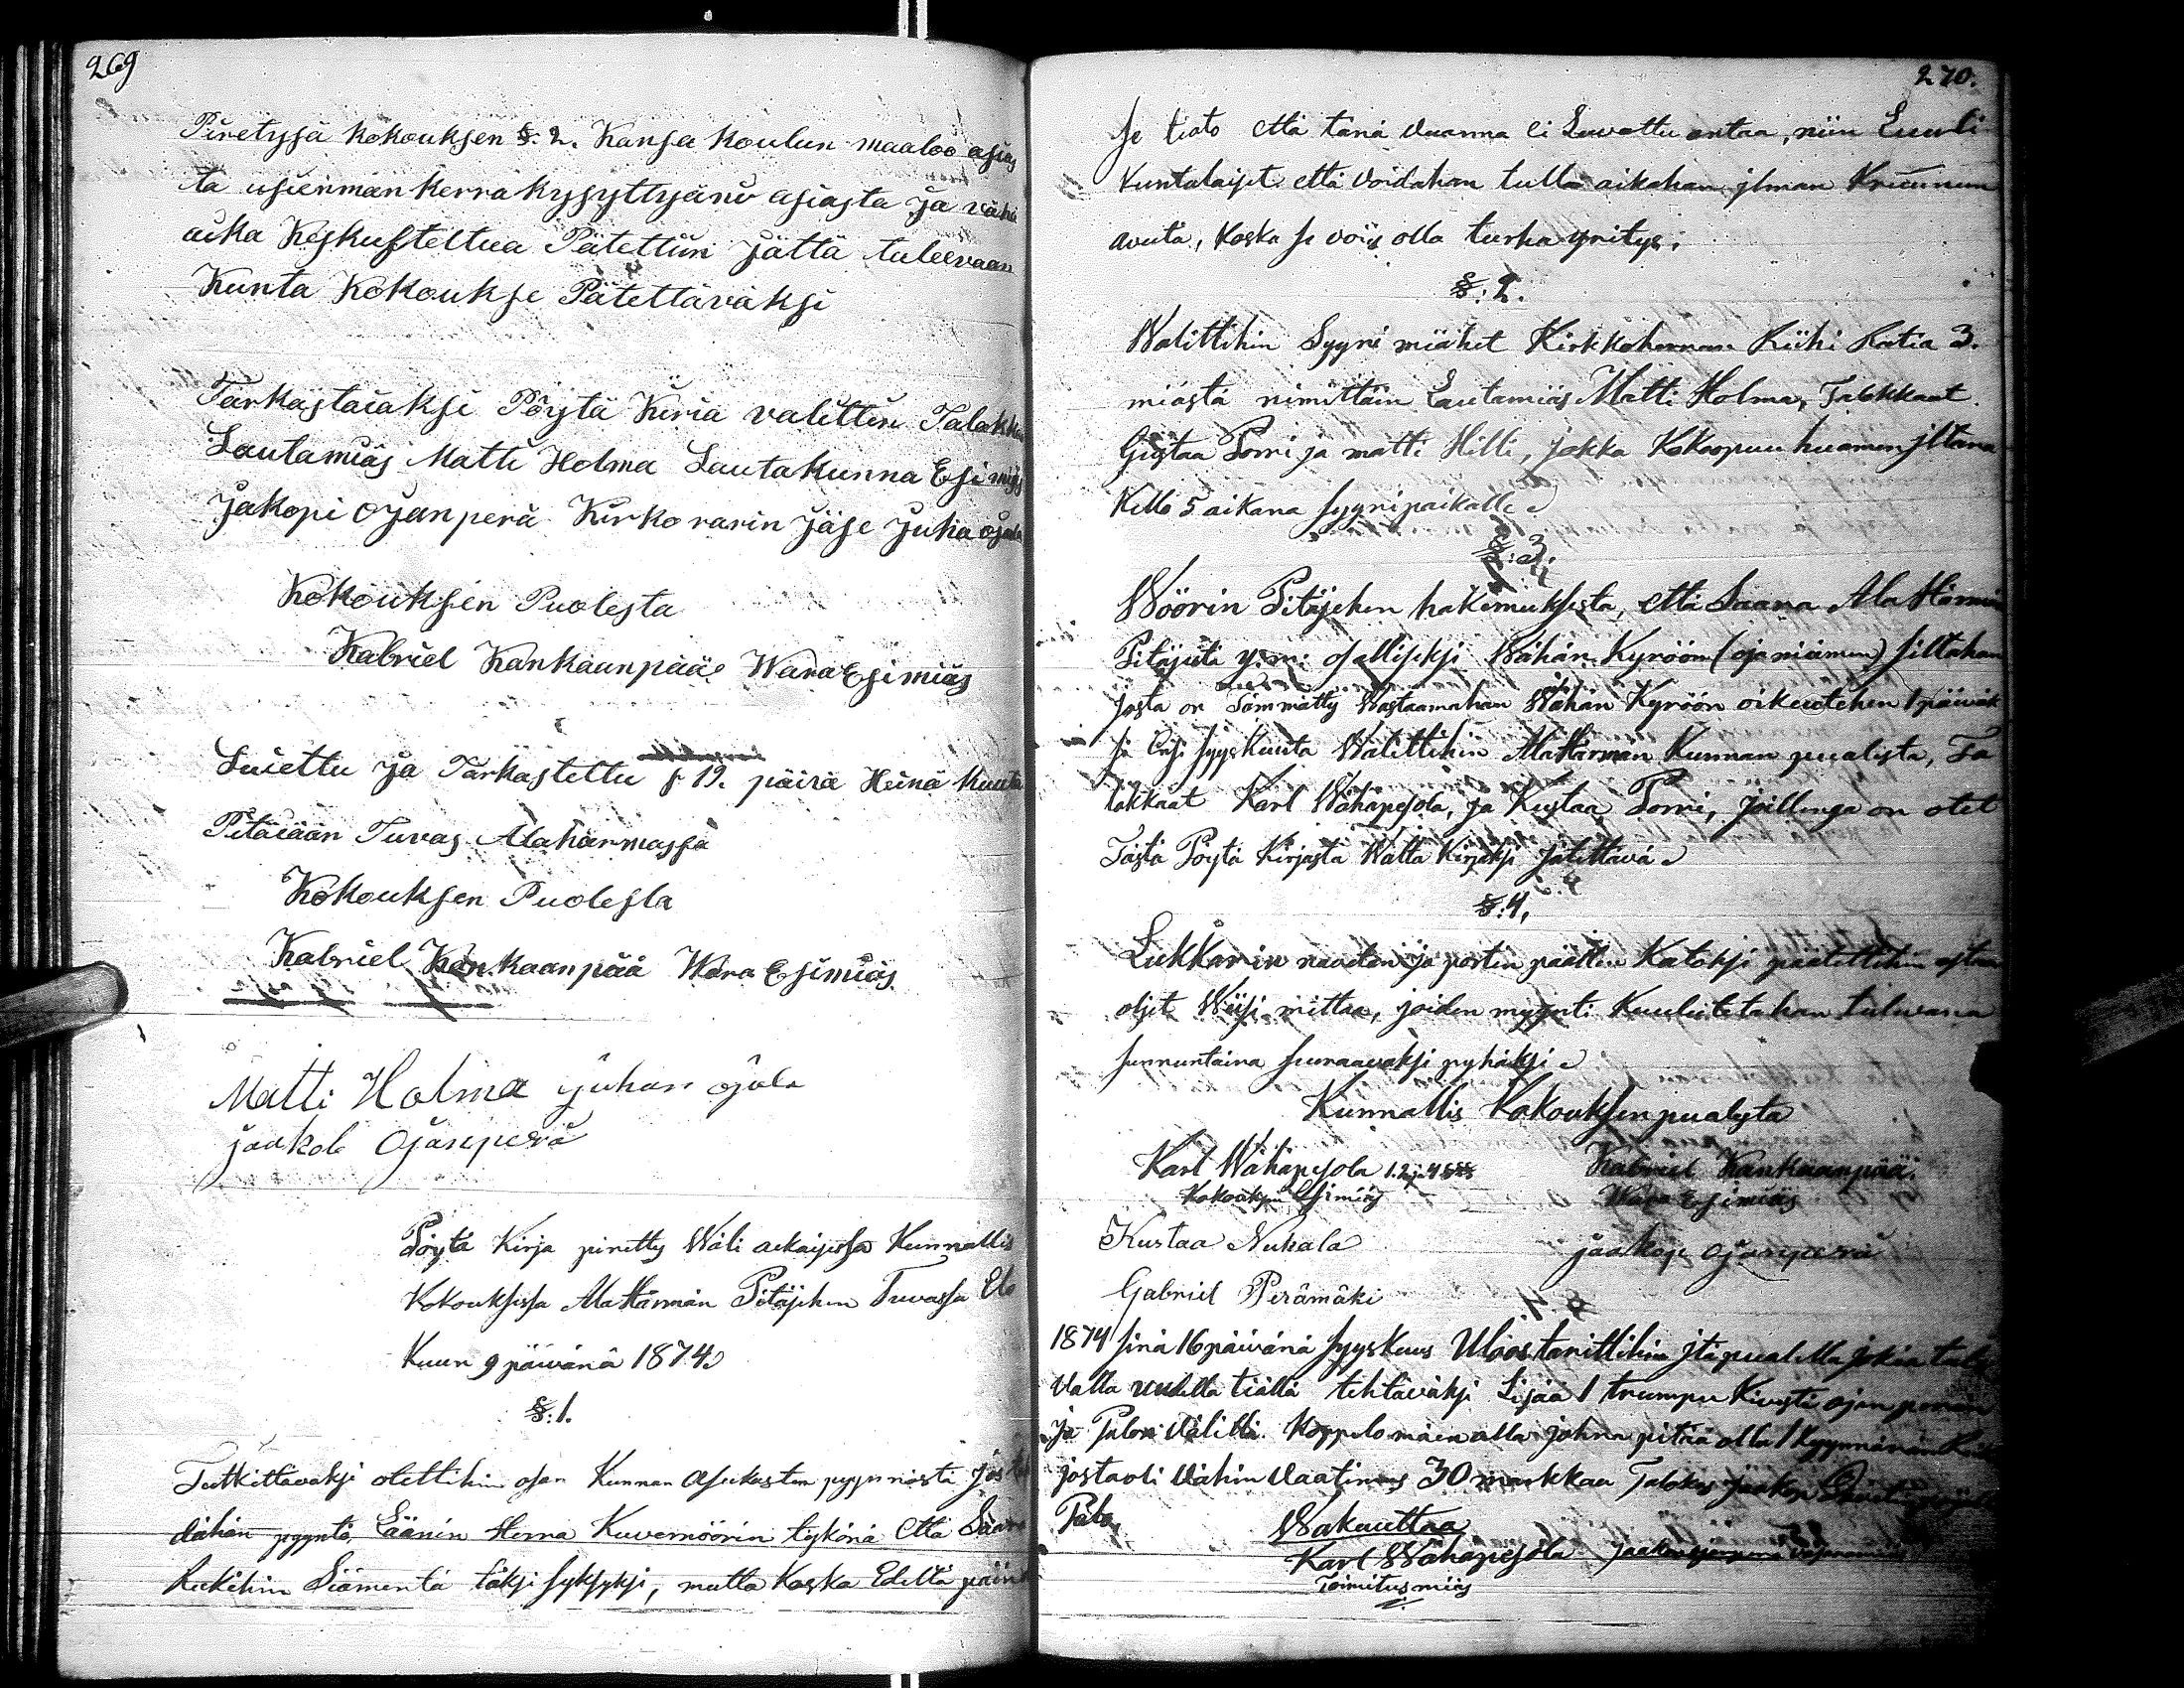 269
Piretysä kokouksen §. 2. Kansa koulun maaloo asias
ta usienman kerra kysyttyänö asiasta ja vähä
aika Keskusteltua Pätettiin jättä tuleevaan
Kunta Kokoukse Pätettäväksi
Tarkastaiaksi Pöytä Kiria valittin
Lautamiäs Matti Holma Lautakunna Esi miäs
Jakopi ojanperä Kirkoravin Jäse Juha ojala
Kokouksen Puolesta
Kabriel Kankaanpää Wara Esimiäs
Luiettu ja Tarkastettu 19. päivä Heinä kuuta
Pitäiään Tuvas Alaharmassa
Kokouksen Puolesta
Kabriel Kankaanpää Wara Esimiäs
Matti Holma juhan ojala
jaakob Ojanperä
Pöytä Kirja piretty Wäli aikaisessa Kunnallis
Kokouksessa AlaHärmän Pitäjehen Tuvassa Elo
Kuun 9 päivänä 1874
§: 1.
Tutkittavaksi otettihin osan Kunnan Asukasten pyynnöstä
dähän pyyntö, Läänin Herra Kuvernöörin tykönä että
Rukihin Siämentä täksi syksyksi, mutta Koska Edeltä päin
270.
se tiato että tänä vuanna ei Luvattu antaa, niin Luuli
Kuntalaiset että voidahan tulla aikahan ilman Kruunun
avuta, koska se voisi olla turha yritys.
§: 2.
Walittihin Syyni miähet Kirkkoherran Riihi Ratia 3.
miästä nimittäin Lautamiäs Matti Holma, Talokkaat
Gustaa Porri ja matti Hilli, jokka Kokoopuu huamen iltana
Kello 5 aikana syynipaikalle
§: 3.
Wöörin Pitäjehen hakemuksesta, että Saara Ala Härmän
Pitäjistä y: m: osallisiksi Wähän Kyröön (ojaniämen) siltahan
Josta on Tömmätty Wastaamahan Wähän Kyröön oikeutehen 1 päivä
Syyskuuta Walittihin AlaHärmän Kunnan puolesta, Ta
lokkaat Karl Wähäpesola, ja Kustaa Porri, joillenga on otet
Tästä Pöytä Kirjasta Walta Kirjaksi jätettävä
§: 4.
Lukkarin navetan ja portin päällen Katoksi päätettihin ostaa
oljet Wiisi mittaa, joiden myynti Kuulutetahan tulevana
sunnuntaina seuraavaksi pyhäksi
Kunnallis Kokouksen puolesta
Karl Wähäpesola 1. 2 ja 4 §§§
Kokouksen Esimiäs
Kabriel Kankaanpää
Wara Esimiäs
Kustaa Nukala
jaakop ojanperä
Gabriel Perämäki
1874 sinä 16 päivänä Syyskuus Ulostarittihin
Valla uudella tiällä tehtäväksi Lisää 1 trumpu Kivestä ojan
ja Palon välillä. Koppelo mäen alla johna pitää olla 1 kyynnärän
josta oli vähin vaatimus 30 markkaa Talokas Jaakop
Palo,
Wakuuttaa
Karl Wähäpesola
Toimitusmiäs